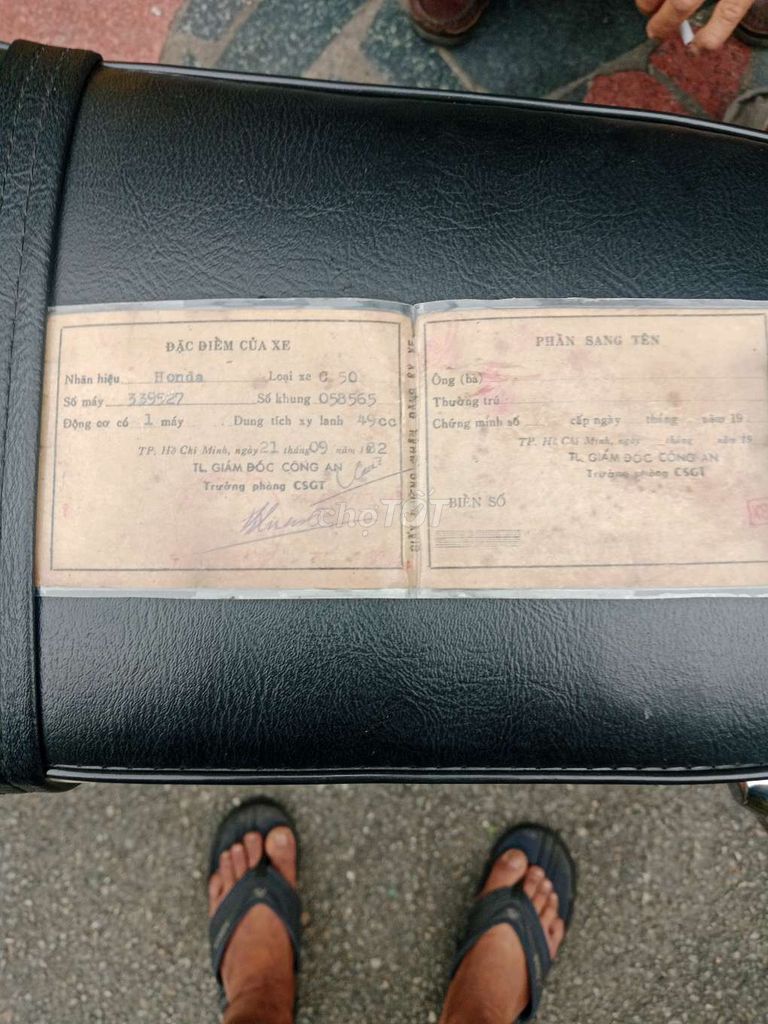 ĐẶC ĐIỂM CỦA XE
Nhãn hiệu Honda Loại xe C 50
Số máy 339527 Số khung 058565
Động cơ có 1 máy Dung tích xy lanh 49cc
TP. Hồ Chí Minh, ngày 21 tháng 09 năm 1982
TL. GIÁM ĐỐC CÔNG AN
Trưởng phòng CSGT
PHẦN SANG TÊN
Ông (bà)
Thường trú
Chứng minh số cấp ngày tháng năm 19
TP. Hồ Chí Minh, ngày tháng năm 19
TL. GIÁM ĐỐC CÔNG AN
Trưởng phòng CSGT
BIỂN SỐ
chợTỐT